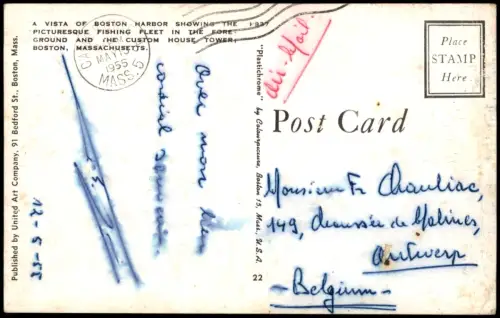 A VISTA OF BOSTON HARBOR SHOWING THE
PICTURESQUE FISHING FLEET IN THE FORE-
GROUND AND THE CUSTOM HOUSE TOWER,
BOSTON, MASSACHUSETTS.
MAY 13
1955
MASS. 5
air-mail.
Place
STAMP
Here
Post Card
Avec mon bien
cordial souvenir.
12-5-55
Monsieur Fr Chauliac,
149, chaussée de Malines,
Antwerp
- Belgium -
Published by United Art Company, 91 Bedford St., Boston, Mass.
"Plastichrome" by Colourpicture, Boston 15, Mass., U.S.A.
22